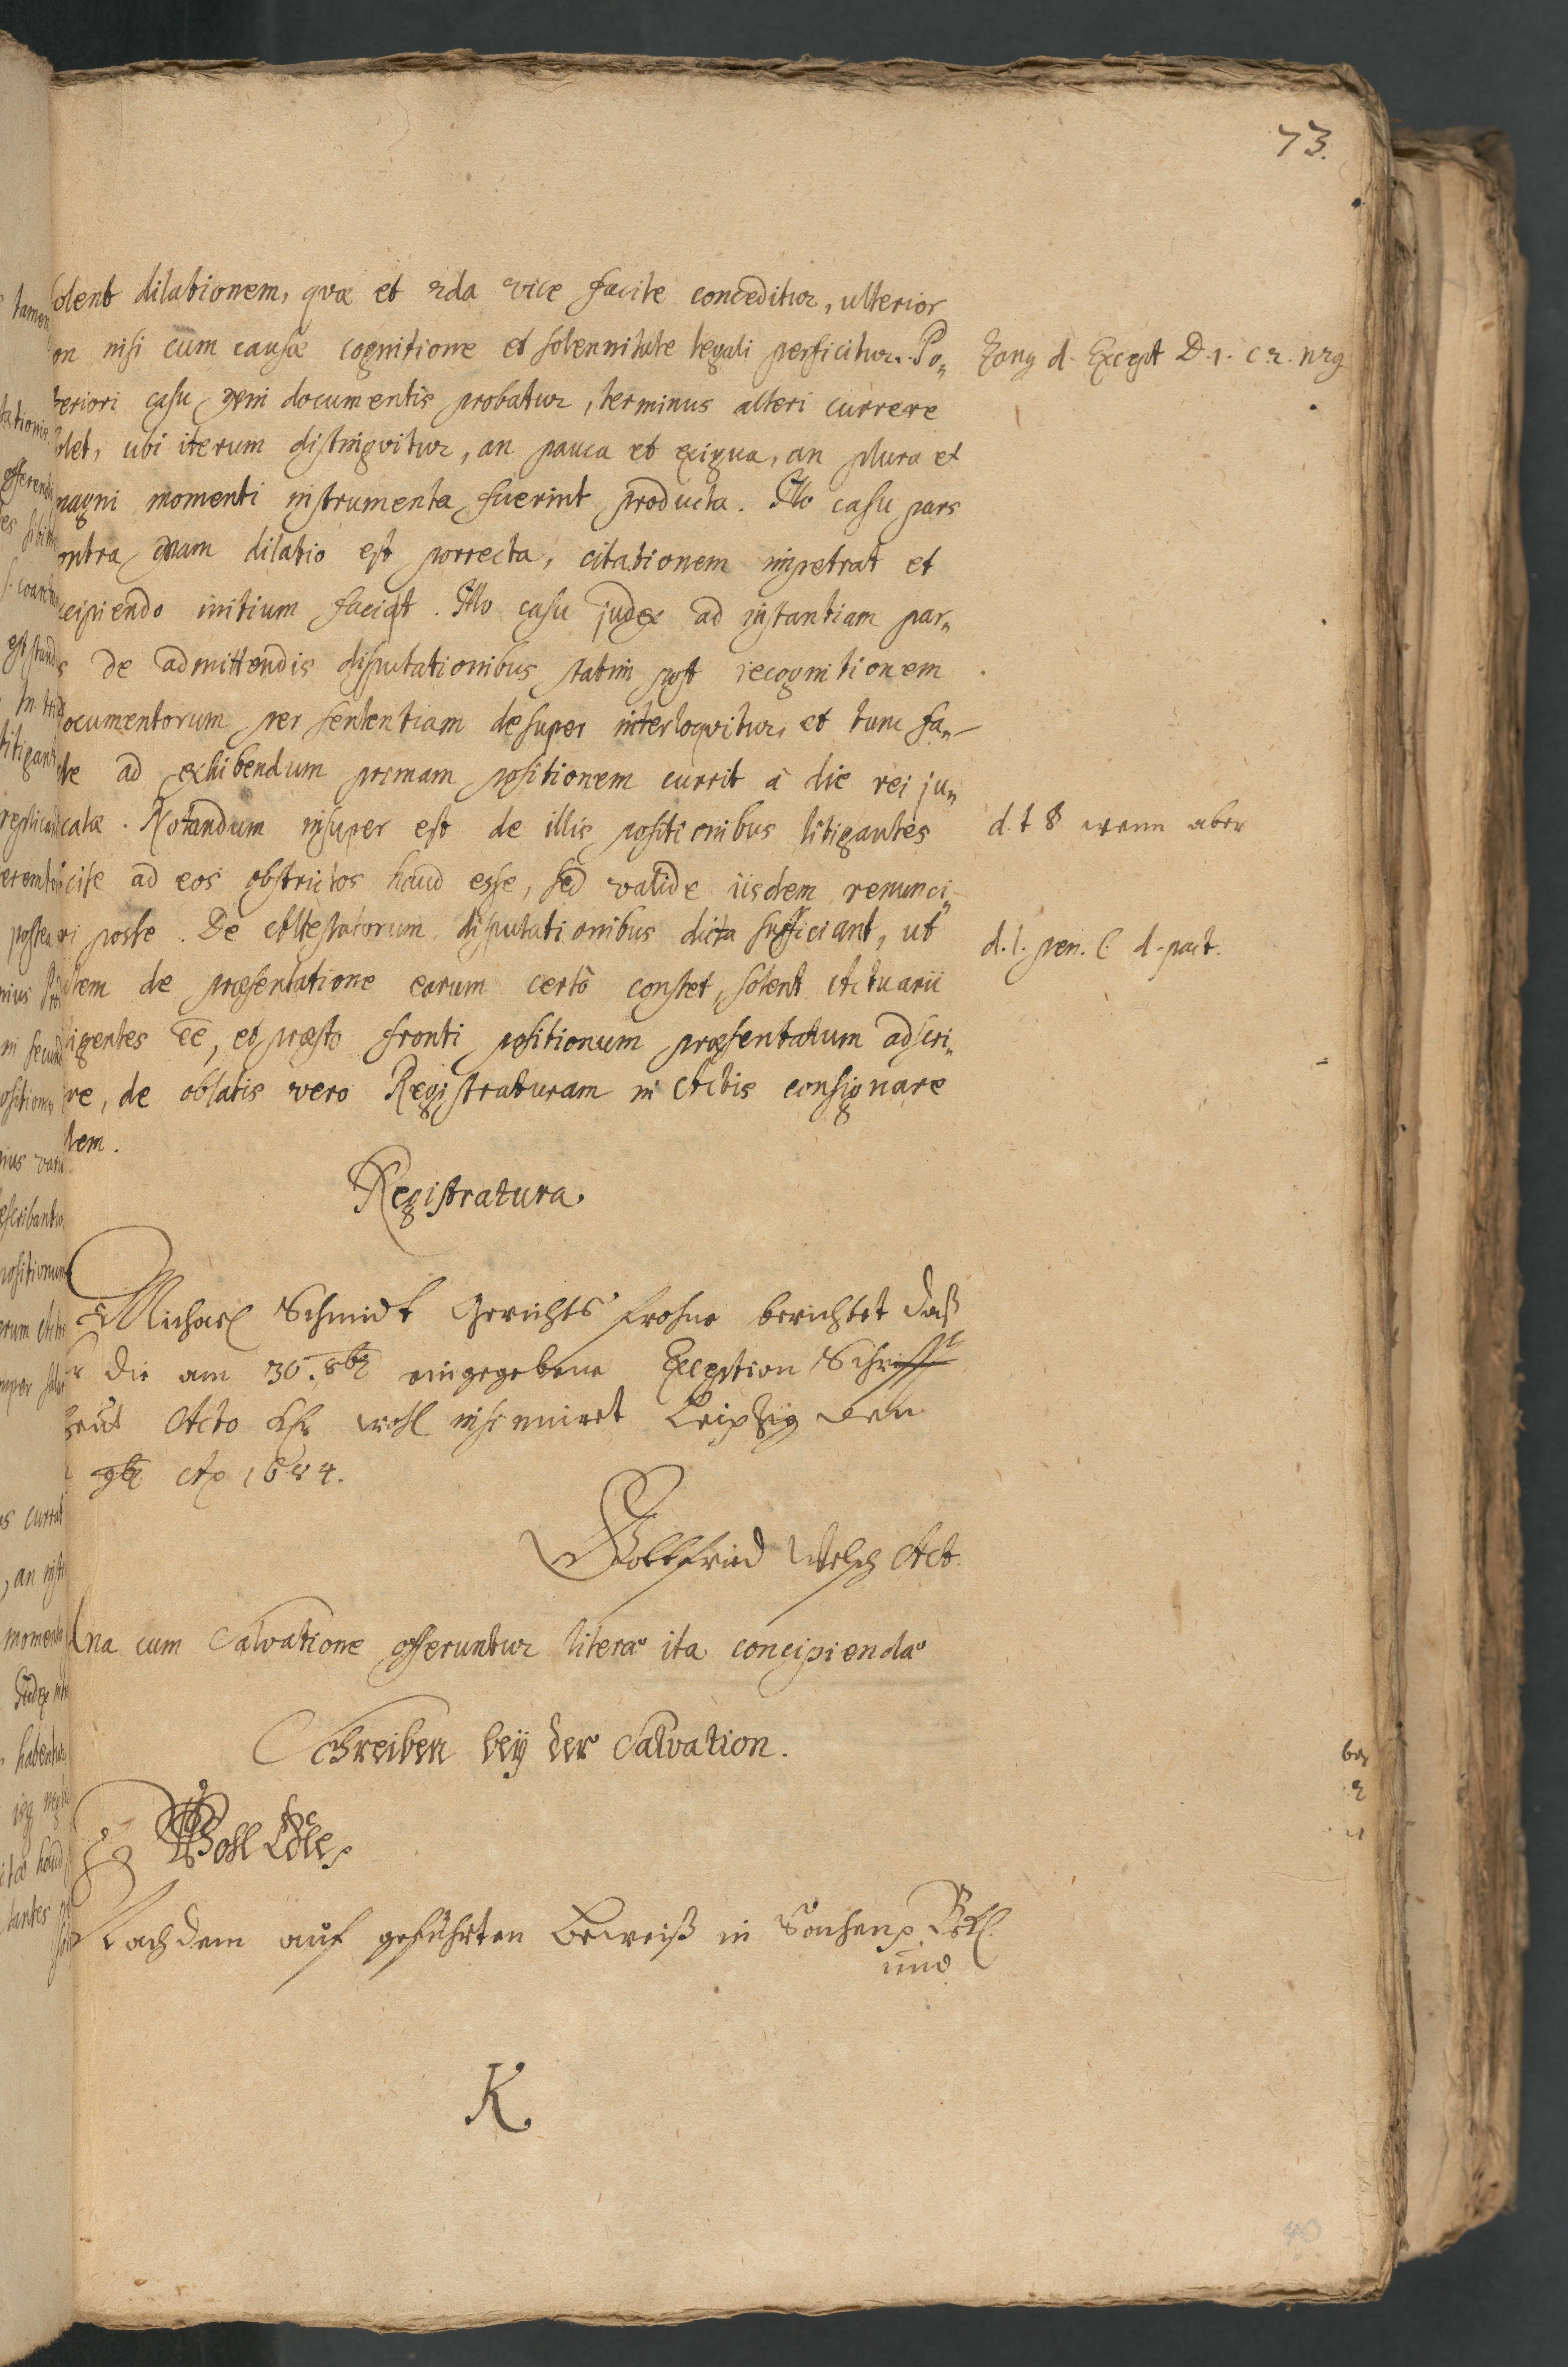 73.
solent dilationem, qvæ et 2da vice facile conceditur, ulterior
on nisi cum causæ cognitione et solennitate legali perficitur. Po„
Zang d. Except D. 1. c 2. n 29
teriori casu qvum documentis probatur, terminus alteri currere
olet, ubi iterum distingvitur, an pauca et exigua, an plura et
magni momenti instrumenta fuerint producta. Illo casu pars
ontra qvam dilatio est porrecta, citationem impetrat et
cipiendo initium faciat. Illo casu judex ad instantiam par„
s de admittendis disputationibus statim post recognitionem
documentorum per sententiam desuper interloqvitur, et tunc fa„
le ad exhibendum primam positionem currit à die rei ju„
catæ. Notandum insuper est de illis positionibus litigantes
d. t § wenn aber
cise ad eos obstrictos haud esse, sed valide iisdem renunci„
ri posse. De Attestatorum disputationibus dicta sufficiant, ut
d. l. pen. C. d. pact.
item de præsentatione earum certò constet, solent Actuarii
igentes ee, et præsto fronti positionum præsentatum adscri„
re, de oblatis vero Registraturam in Actis consignare
tem.
Registratura.
Michael Schmidt Gerichts frohne berichtet daß
r die am 30. 8br eingegebene Exception Schrifft
heut Acto wohl insinuiret Leipzig den
9br Ao 1684.
Gottfried Welsch Act.
Una cum Salvatione offeruntur literæ ita concipiendæ
Schreiben beÿ der Salvation.
Wohl Edle
Nachdem auf geführten beweiß in Sachen Bekl.
und
K